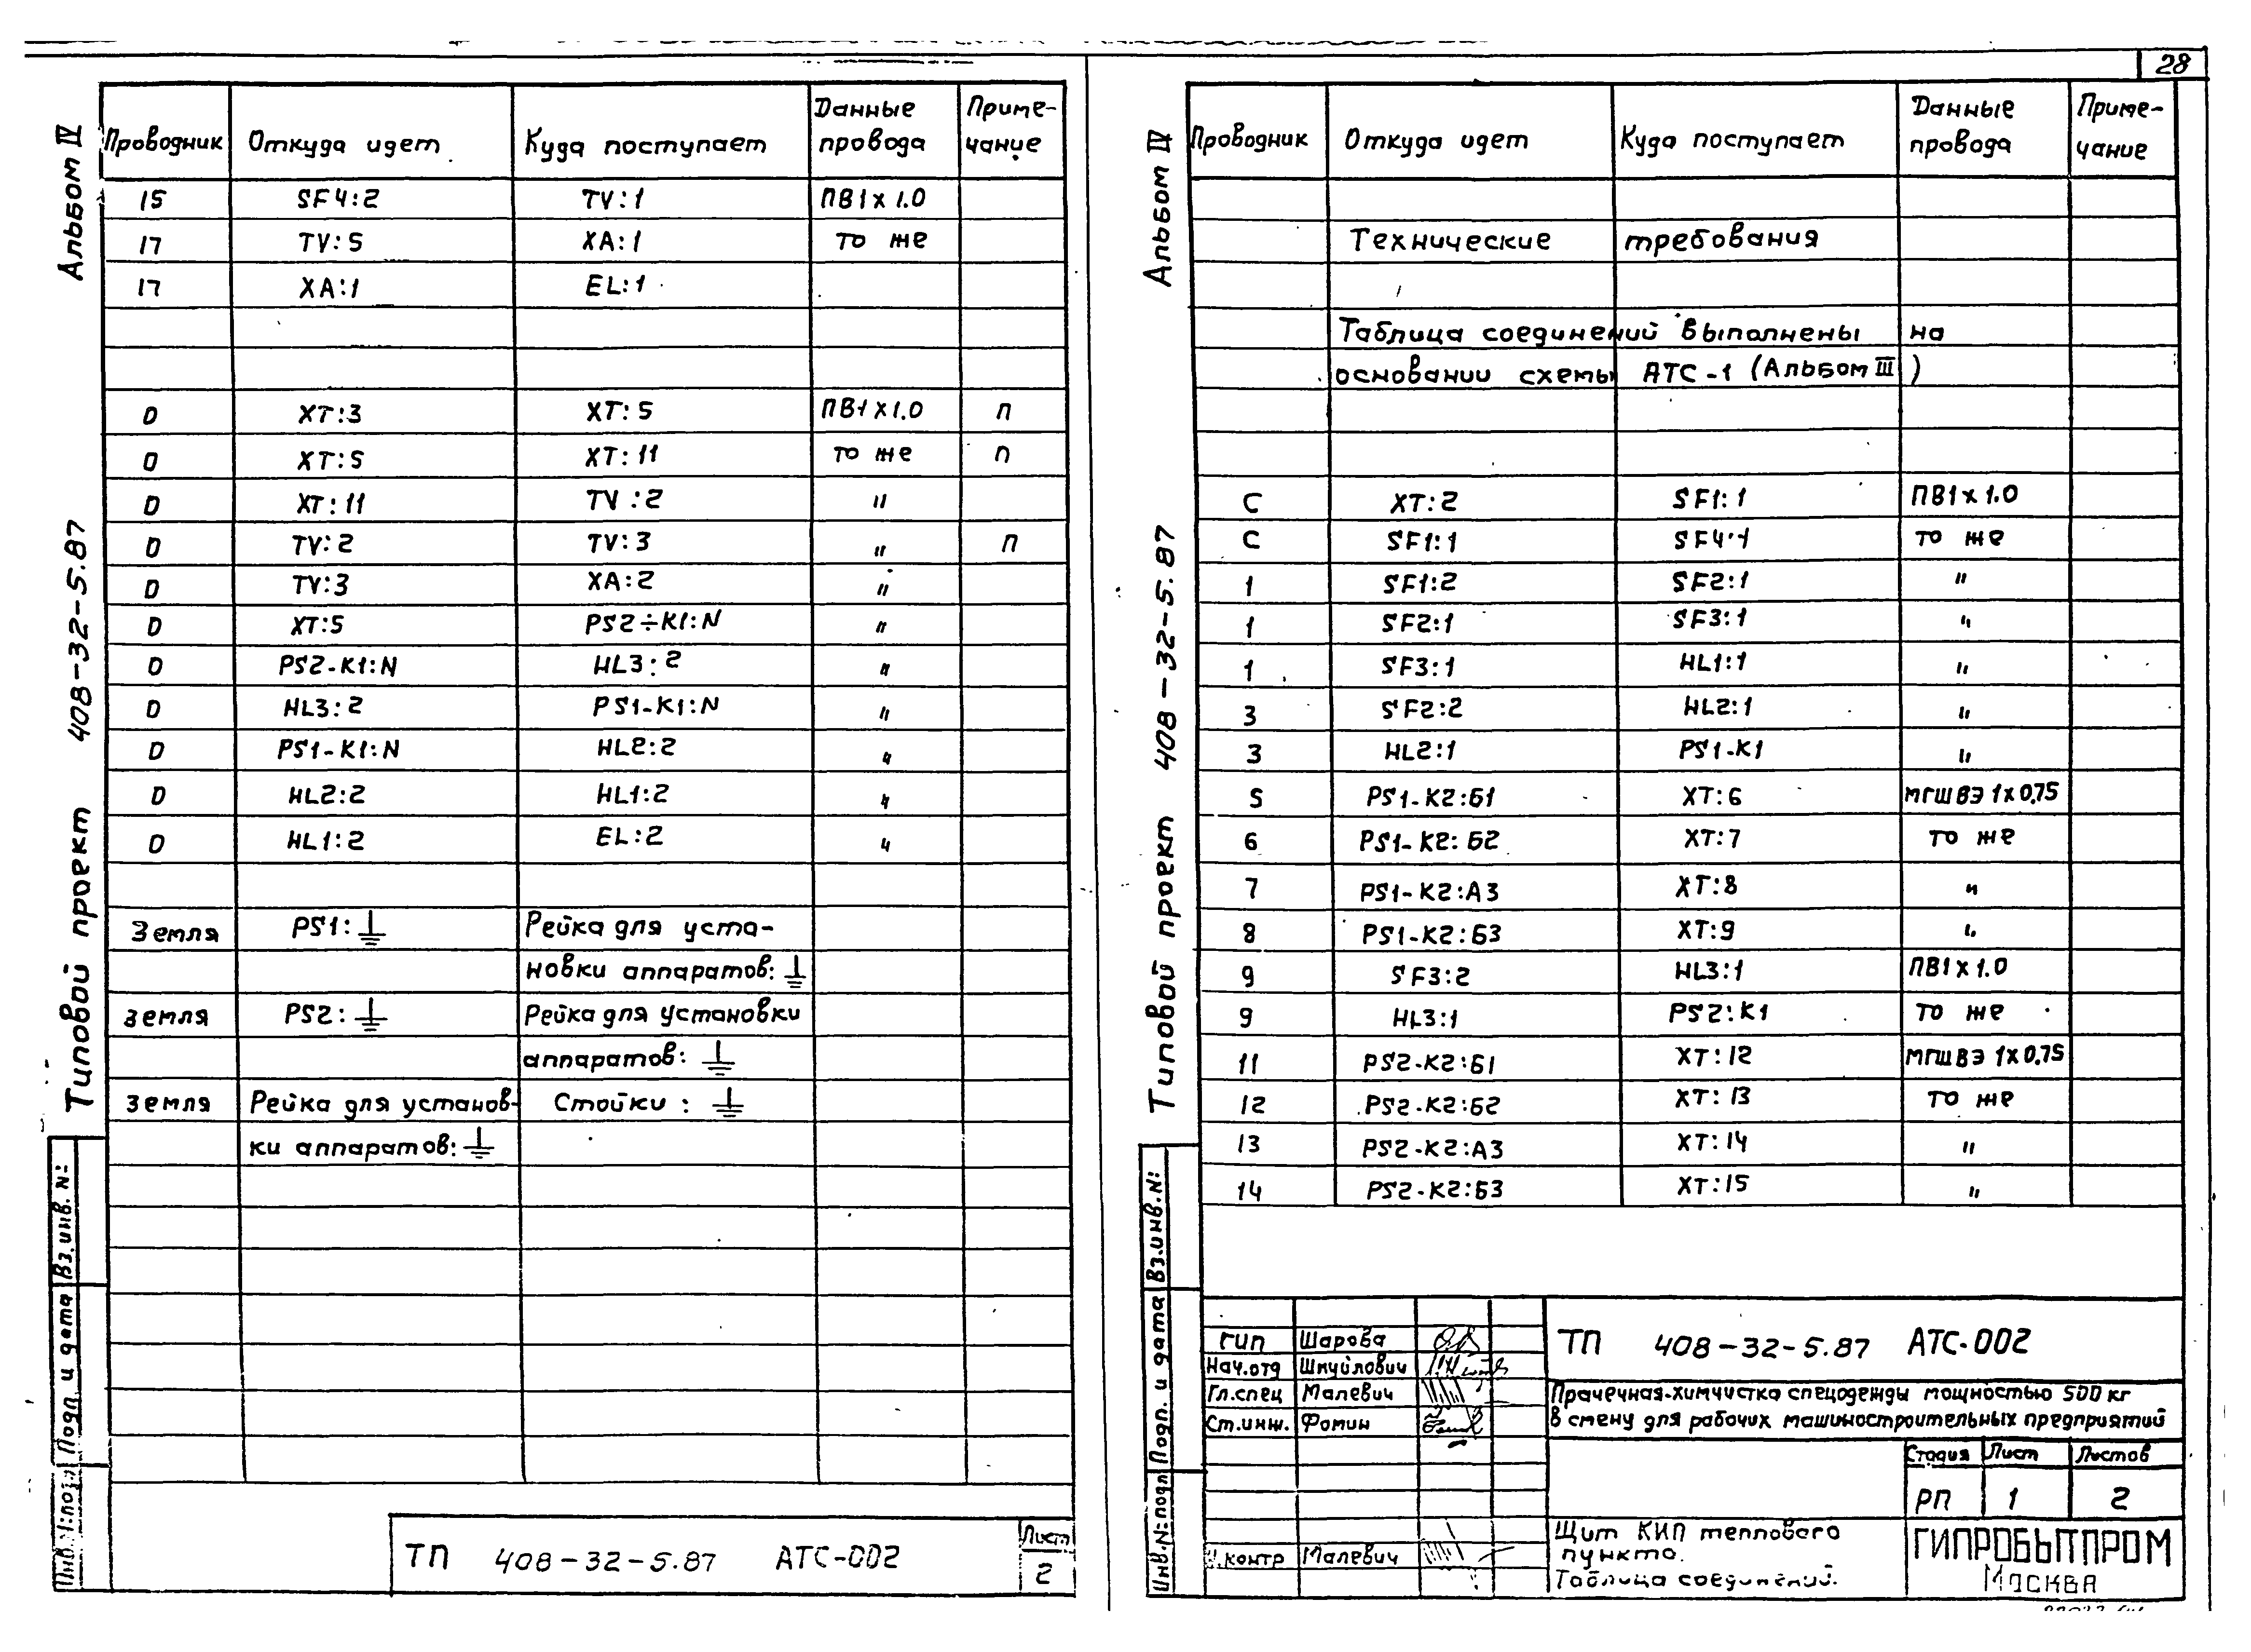 28
Альбом IV
Типовой проект 408-32-5.87
Проводник Откуда идет Куда поступает Данные провода Приме-чание
15 SF4:2 TV:1 ПВ1х1.0
17 TV:5 XA:1 то же
17 XA:1 EL:1
0 XT:3 XT:5 ПВ1х1.0 п
0 XT:5 XT:11 то же п
0 XT:11 TV:2 "
0 TV:2 TV:3 " п
0 TV:3 XA:2 "
0 XT:5 PS2÷K1:N "
0 PS2-K1:N HL3:2 "
0 HL3:2 PS1-K1:N "
0 PS1-K1:N HL2:2 "
0 HL2:2 HL1:2 "
0 HL1:2 EL:2 "
Земля PS1:⏚ Рейка для уста-
новки аппаратов:⏚
земля PS2:⏚ Рейка для установки
аппаратов:⏚
земля Рейка для установ- Стойки:⏚
ки аппаратов:⏚
Вз.инв.N:
Подп и дата
Инв.N:подл
ТП 408-32-5.87 АТС-002
Лист
2
Альбом IV
Типовой проект 408-32-5.87
Проводник Откуда идет Куда поступает Данные провода Приме-чание
Технические требования
Таблица соединений выполнены на
основании схемы АТС-1 (Альбом III)
C XT:2 SF1:1 ПВ1х1.0
C SF1:1 SF4:1 то же
1 SF1:2 SF2:1 "
1 SF2:1 SF3:1 "
1 SF3:1 HL1:1 "
3 SF2:2 HL2:1 "
3 HL2:1 PS1-K1 "
5 PS1-K2:Б1 XT:6 МГШВЭ 1х0,75
6 PS1-K2:Б2 XT:7 то же
7 PS1-K2:А3 XT:8 "
8 PS1-K2:Б3 XT:9 "
9 SF3:2 HL3:1 ПВ1х1.0
9 HL3:1 PS2:K1 то же
11 PS2-K2:Б1 XT:12 МГШВЭ 1х0,75
12 PS2-K2:Б2 XT:13 то же
13 PS2-K2:А3 XT:14 "
14 PS2-K2:Б3 XT:15 "
Вз.инв.N:
Подп. и дата
Инв.N:подл
ГИП Шарова
Нач.отд Шмуйлович
Гл.спец Малевич
Ст.инж. Фомин
Н.контр Малевич
ТП 408-32-5.87 АТС-002
Прачечная-химчистка спецодежды мощностью 500 кг
в смену для рабочих машиностроительных предприятий
Стадия Лист Листов
РП 1 2
Щит КИП теплового
пункта.
Таблица соединений.
ГИПРОБЫТПРОМ
Москва